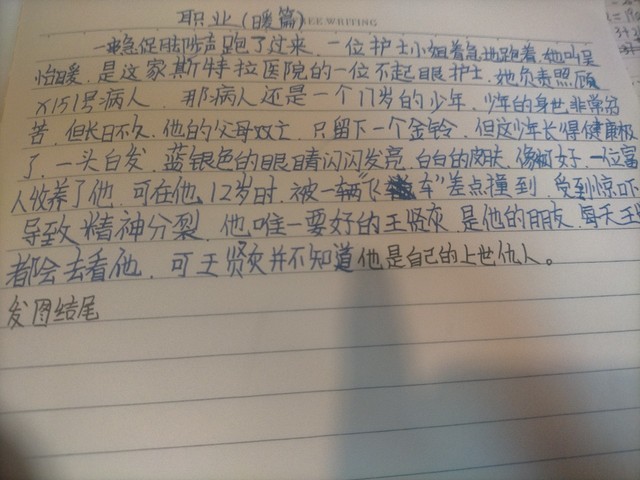 职业(暖篇) FREE WRITING
一串急促脚步声跑了过来,一位护士小姐着急地跑着,她叫吴
怡暖,是这家斯特拉医院的一位不起眼护士,她负责照顾
X151号病人,那病人还是一个17岁的少年,少年的身世非常穷
苦,但长日不久,他的父母双亡,只留下一个金铃,但这少年长得健康极
了,一头白发,蓝银色的眼睛闪闪发亮,白白的皮肤,像 好,一位富
人收养了他,可在他12岁时,被一辆"飞车"差点撞到,受到惊吓
导致精神分裂,他唯一要好的王贤灰,是他的朋友,每天王贤
都会去看他,可王贤灰并不知道他是自己的上世仇人。
发图结尾